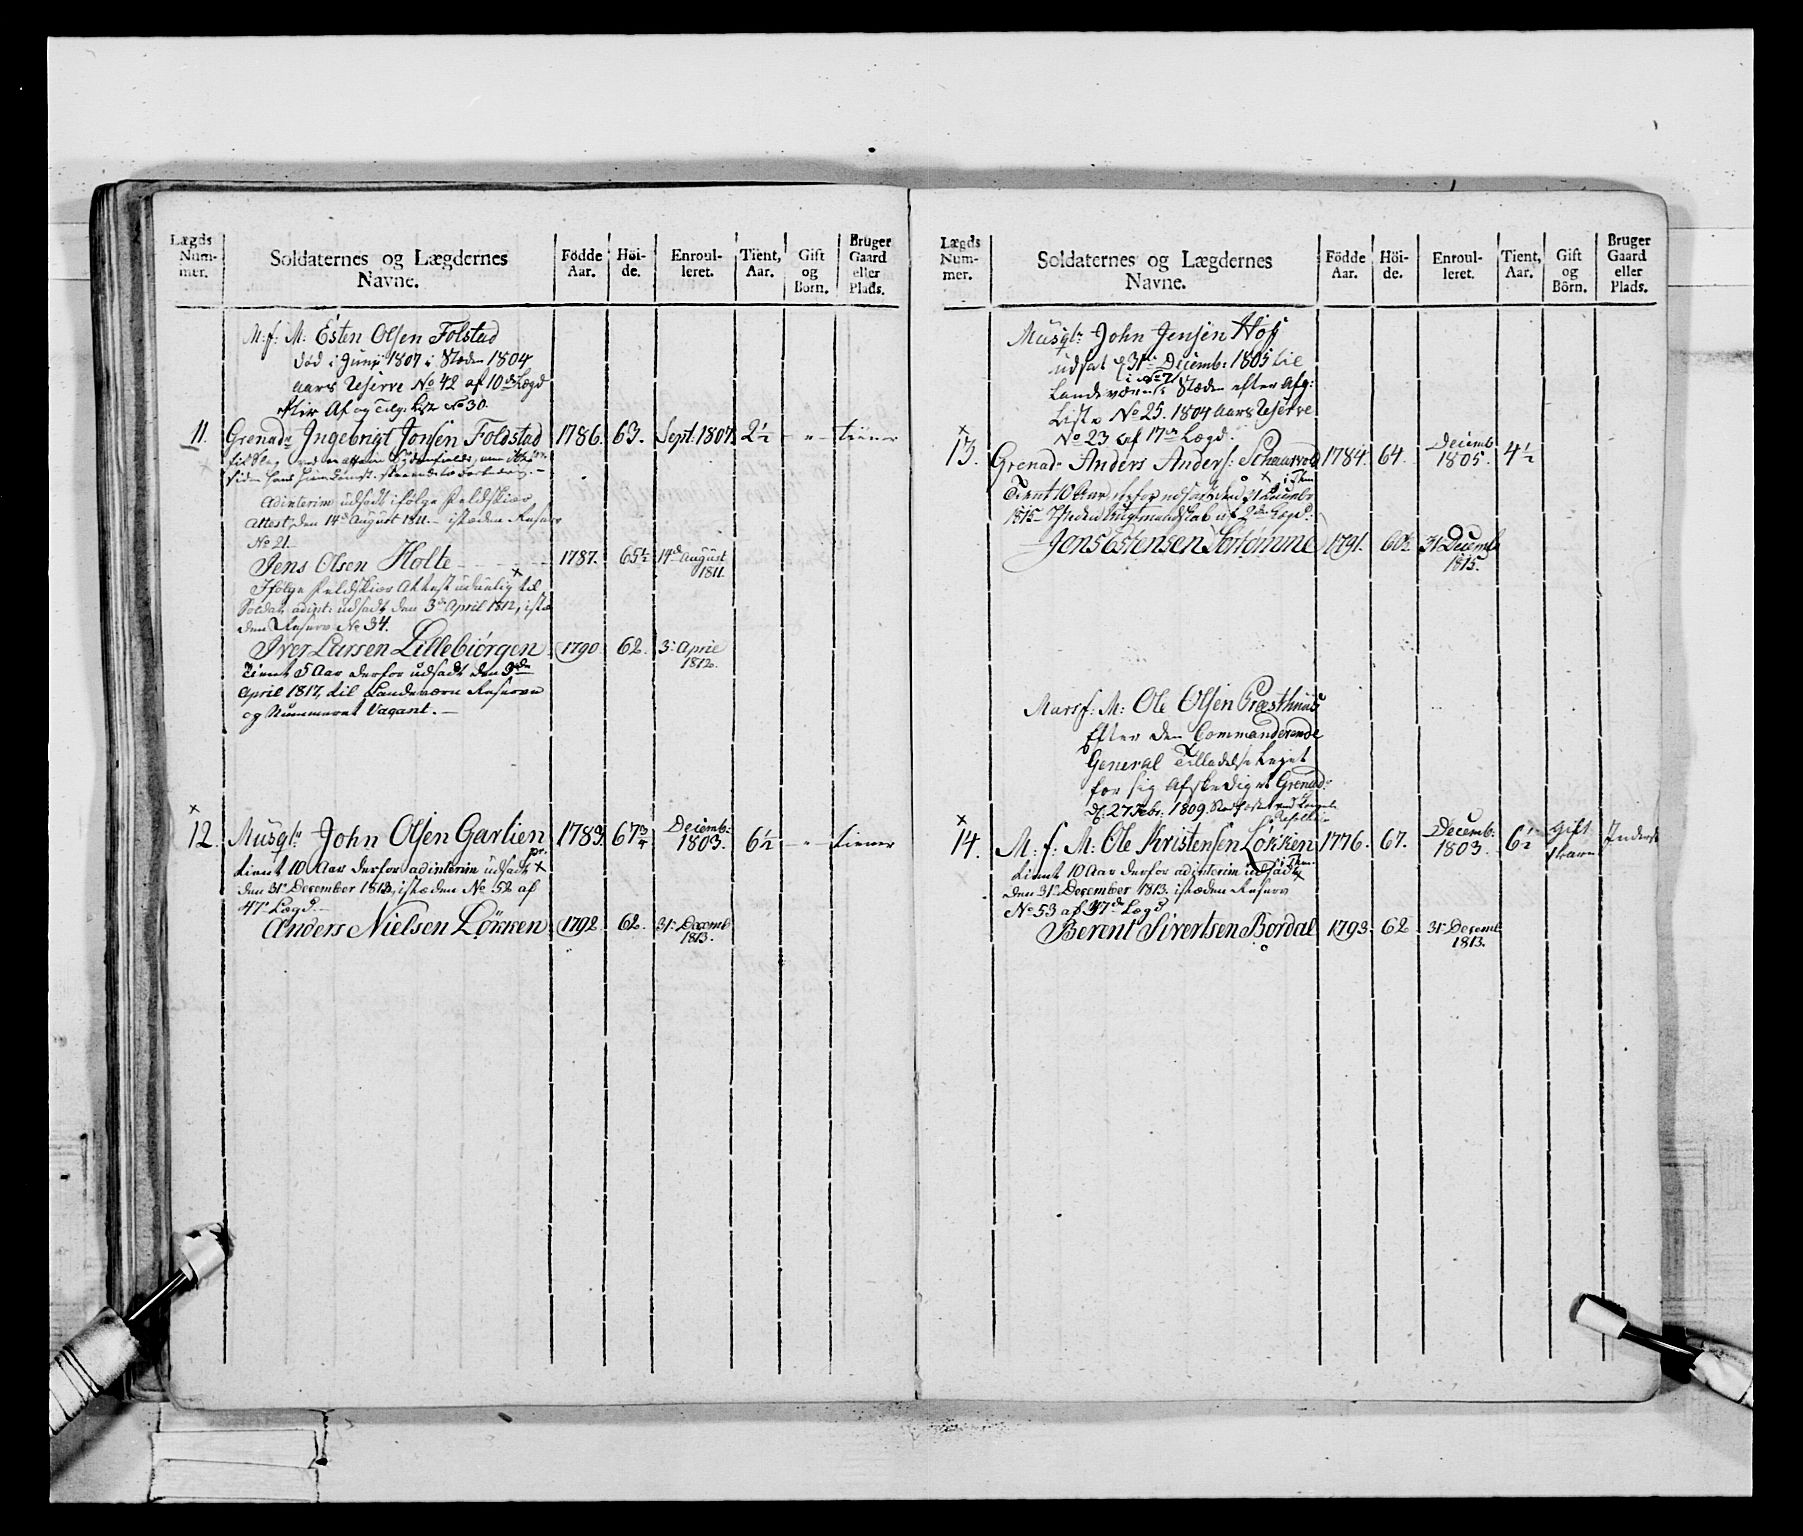 Lægds Num- mer.
Soldaternes og Lægdernes Navne.
Födde Aar.
Höi- de.
Enroul- leret.
Tient, Aar.
Gift og Börn.
Bruger Gaard eller Plads.
M: f: M: Esten Olsen Folstad
död i Junij 1807 i Stæden 1804
aars Reserve No 42 af 10de Lægd
efter Af og Tilg: Liste No 30.
11. Grenadr Ingebrigt Jonsen Foldstad 1786. 63. Sept. 1807. 2½ - „ - tiener
Adinterim udsadt ifölge Feldskiær
Attest, den 14de August 1811. – istæden Reserv
No 21.
Jens Olsen Holte 1787. 65½ 14de August 1811.
Ifölge Feldskiær Attest udulig til
Soldat, adint: udsadt den 3de April 1812, istæ
den Reserv No 34.
Iver Larsen Lillebiörgen 1790 62. 3. April 1812.
Tient 5 Aar derfor udsadt den 3de
April 1817, til Landeværn Reserven
og Nummeret Vagant. –
12. Musqtr John Olsen Garlien 1783. 67¾ Decemb: 1803. 6½ - „ - tiener
tient 10 Aar derfor adinterim udsadt
den 31. December 1813, istæden No 52 af
47. Lægd. –
Anders Nielsen Lökken 1792. 62. 31. Decemb 1813.
Lægds Num- mer.
Soldaternes og Lægdernes Navne.
Födde Aar.
Höi- de.
Enroul- leret.
Tient, Aar.
Gift og Börn.
Bruger Gaard eller Plads.
Musqtr John Jensen Hoff
udsat d 31te Decemb: 1805 til
Landeværnet i Stæden efter Afg:
Liste No 25. 1804 Aars Reserve
No 23 af 17de Lægd.
13. Grenadr Anders Anders: 1784. 64. Decemb 1805. 4½
Tient 10 Aar, derfor udsadt den 31 Decembr
1815
Jens Estensen 1791. 60½ 31. Decemb 1815.
Marsf: M: Ole Olsen Præsthuus
Efter den Commanderende
General Tilladelse Leyet
for sig Afskediget Grenadr
d: 27 Febr. 1809.
14. M: f: M: Ole Kristensen Lökken 1776. 67. Decemb: 1803. 6½ Gift
tient 10 Aar derfor adinterim udsadt
den 31. December 1813. istæden Reserv
No 53 af 37de Lægd
Berent Sivertsen Bordal 1793. 62 31. Decemb 1813.